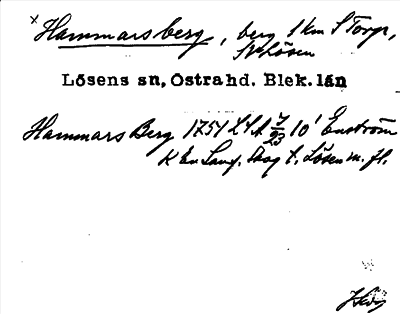 x Hammarsberg, berg 1 km S Torp,
Lösen
Lösens sn, Östra hd. Blek. län
Hammars Berg 1751 LSA 7/23 10' Enström
K En Lang. Skog t. Lösen m. fl.